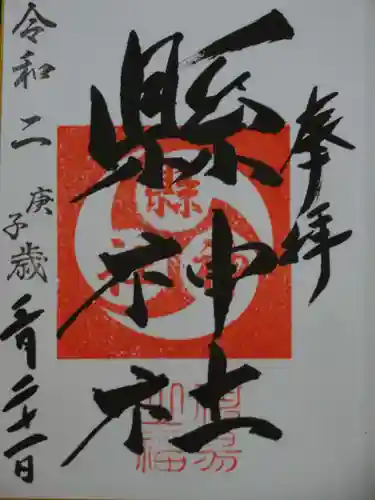 奉拝
縣神社
令和二庚子歳 二十一日
縣神社